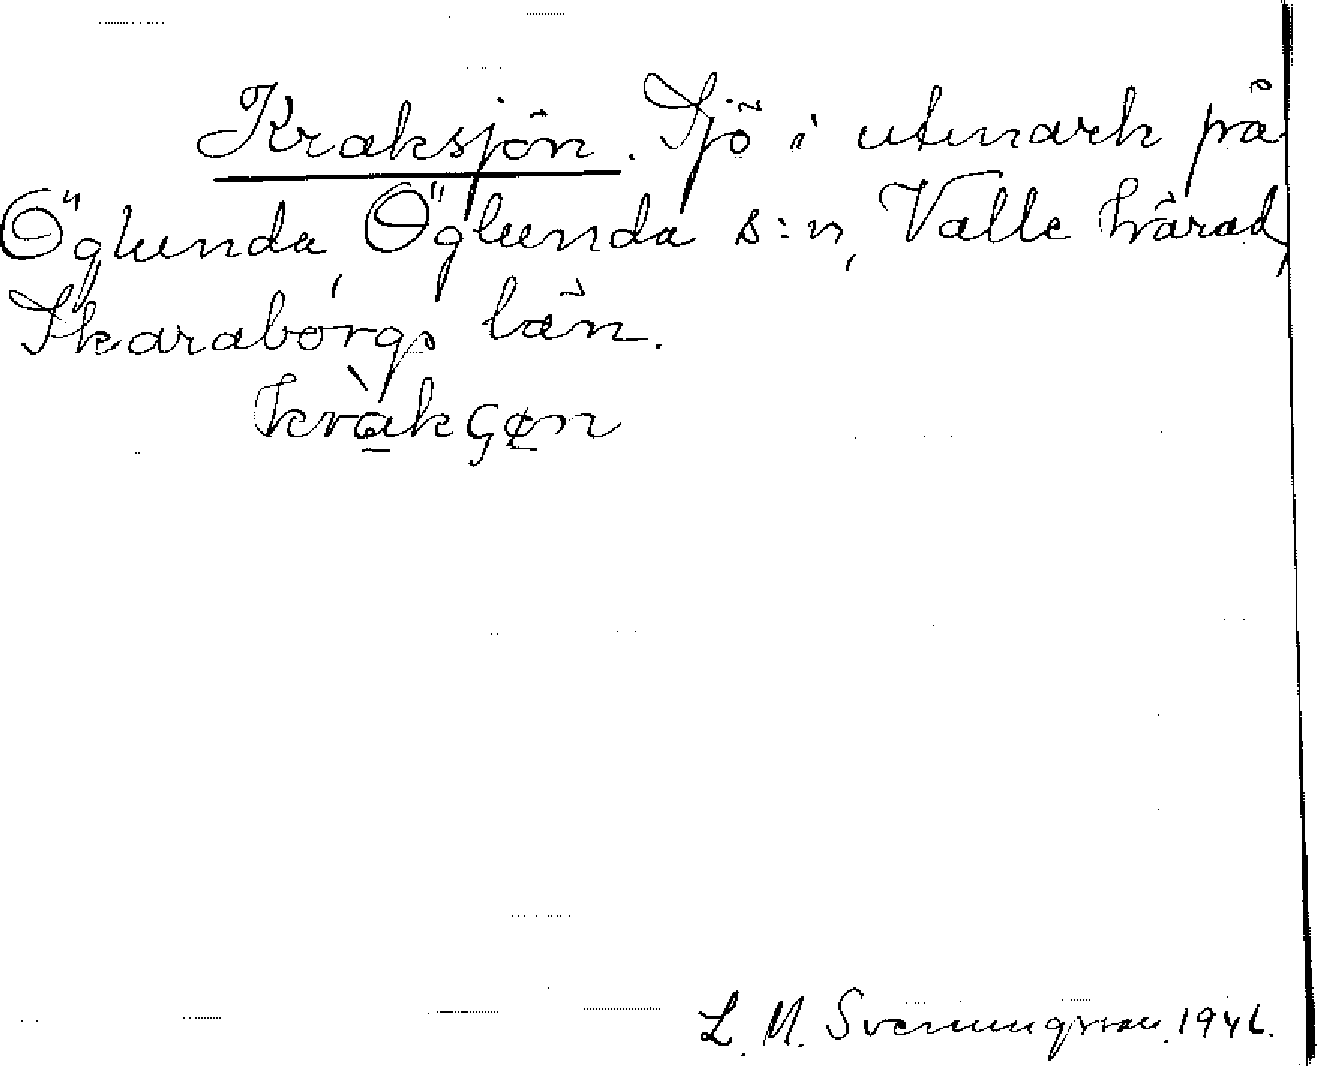 Kraksjön. Sjö i utmark på
Öglunda, Öglunda s:n, Valle härad,
Skaraborgs län.
kràkşøn
L. M. Svenungsson. 1946.